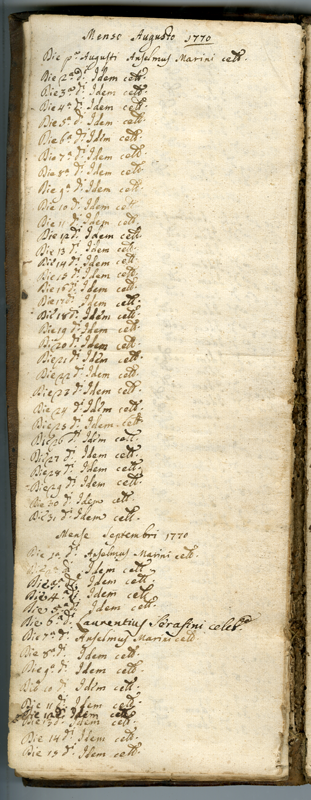 Mense Augusto 1770
Die pª Augusti Anselmus Marini celt.
Die 2ª dᵗ Idem celt.
Die 3ª dᵗ Idem celt.
Die 4ª dᵗ Idem celt.
Die 5ª dᵗ Idem celt.
Die 6ª dᵗ Idem celt.
Die 7ª dᵗ Idem celt.
Die 8ª dᵗ Idem celt.
Die 9ª dᵗ Idem celt.
Die 10 dᵗ Idem celt.
Die 11 dᵗ Idem celt.
Die 12 dᵗ Idem celt.
Die 13 dᵗ Idem celt.
Die 14 dᵗ Idem celt.
Die 15 dᵗ Idem celt.
Die 16 dᵗ Idem celt.
Die 17 dᵗ Idem celt.
Die 18 dᵗ Idem celt.
Die 19 dᵗ Idem celt.
Die 20 dᵗ Idem celt.
Die 21 dᵗ Idem celt.
Die 22 dᵗ Idem celt.
Die 23 dᵗ Idem celt.
Die 24 dᵗ Idem celt.
Die 25 dᵗ Idem celt.
Die 26 dᵗ Idem celt.
Die 27 dᵗ Idem celt.
Die 28 dᵗ Idem celt.
Die 29 dᵗ Idem celt.
Die 30 dᵗ Idem celt.
Die 31 dᵗ Idem celt.
Mense Septembri 1770
Die pª dᵗ Anselmus Marini celt.
Die 2ª dᵗ Idem celt.
Die 3ª dᵗ Idem celt.
Die 4ª dᵗ Idem celt.
Die 5ª dᵗ Idem celt.
Die 6ª dᵗ Laurentius Serafini celt.
Die 7ª dᵗ Anselmus Marini celt.
Die 8ª dᵗ Idem celt.
Die 9ª dᵗ Idem celt.
Die 10 dᵗ Idem celt.
Die 11 dᵗ Idem celt.
Die 12 dᵗ Idem celt.
Die 13 dᵗ Idem celt.
Die 14 dᵗ Idem celt.
Die 15 dᵗ Idem celt.